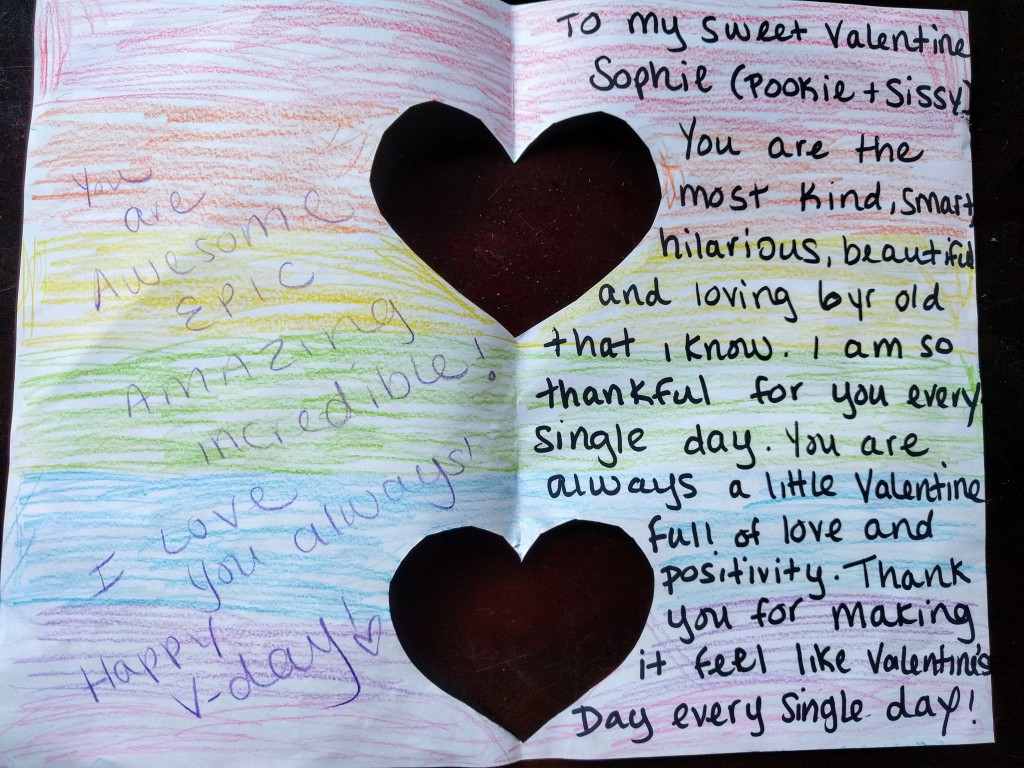 You
are
Awesome
EPIC
AMAZing
incredible!
I Love
you always!
Happy
V-day!
To my sweet Valentine
Sophie (Pookie + Sissy)
You are the
most kind, smart,
hilarious, beautiful
and loving 6yr old
that i know. I am so
thankful for you every
single day. You are
always a little Valentine
full of love and
positivity. Thank
you for making
it feel like Valentine's
Day every single day!